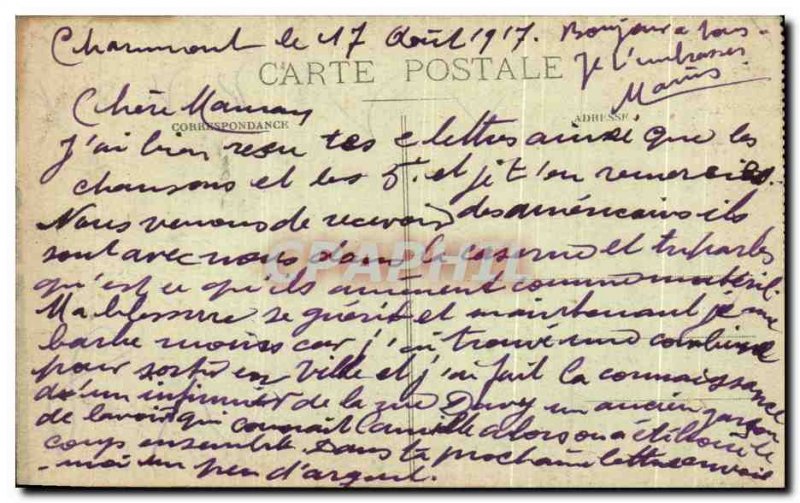 Charmont le 17 Août 1917.
Bonjour a tous
je t'embrasse
Marius
CARTE POSTALE
Chère Maman
CORRESPONDANCE
ADRESSE
J'ai bien resu tes 2 lettres ainsi que les
chansons et les 5f. et je t'en remercie.
Nous venons de recevoir des américains ils
sont avec nous dans la caserne et tu parles
qu'est ce qu'ils amènent comme matériel.
Ma blessure se guérit et maintenant je me
barbe moins car j'ai trouvé une combine
pour sortir en ville et j'ai fait la connaissance
d'un infirmier de la rue Davy un ancien garçon
de lavoir qui connait Camille alors on a été boire le
coup ensemble. Dans ta prochaine lettre envoie
-moi un peu d'argent.
CPAPHIL